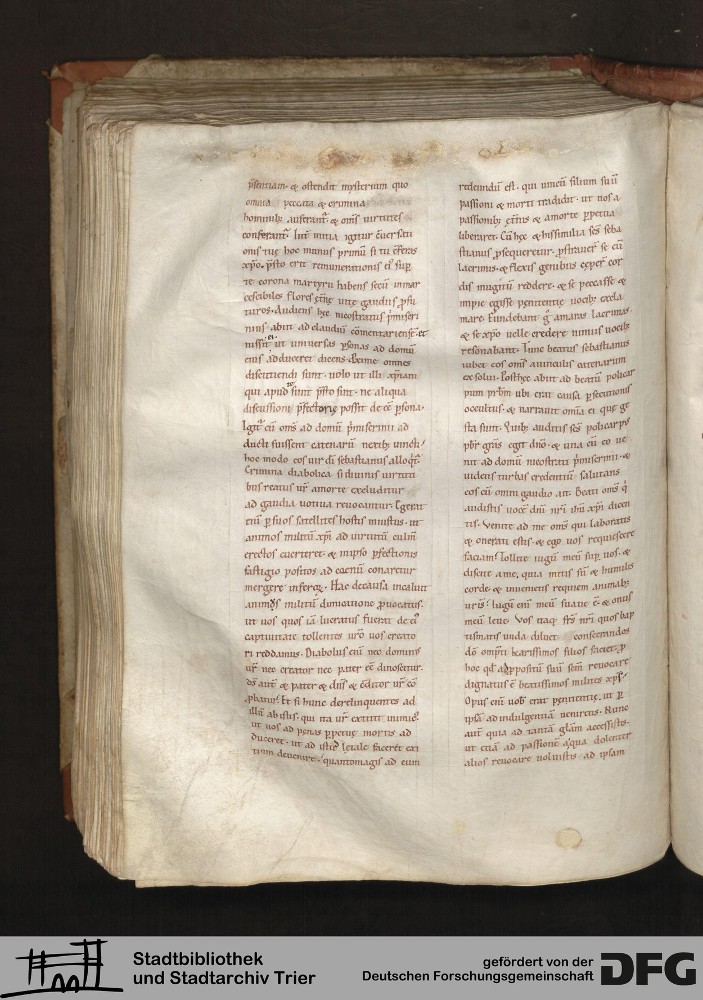 p̄sentiam · & ostendit mysterium quo
omnia peccata & crimina
hominib; auferant᷑ · & om̄s virtutes
conferant᷑ ·
onis tuę hoc munus primū si tu
xp̄o · p̄sto erit remunerationis ei᷒ sup
te corona martyrii habens secū inmar
cescibiles flores
turos · Audiens hęc nicostratus p̄miseri
nius · abiit ad claudiū com̄entariensē · et
iussit ei ut universas p̄sonas ad domū
eius adduceret dicens · Exime omnes
discutiendi sunt · volo ut illi xp̄iani
qui apud sunt p̄sto sint · ne aliqua
discussioni p̄fectorię possit de ēē p̄sona ·
Igit᷑ cū om̄s ad domū p̄miserinii ad
ducti fuissent catenarū nexib; vincti ·
hoc modo eos vir dī sebastianus alloq̄t᷑ ·
Crimina diabolica si divinis virtuti
bus reatus ur̄ amore excluditur
ad gaudia votiva revocantur · Egerat
enī p suos satellites hostis iniustus · ut
animos militū xp̄i ad virtutū culm̄
erectos everteret · & in ipso p̄fectionis
fastigio positos · ad cęnū conaretur
mergere inferoꝝ · Hac de causa incaluit
animꝰ militū dimicatione p̄vocatus ·
ut vos quos iā lucratus fuerat de ei᷒
captivitate tollentes ur̄o vos creato
ri reddamus · Diabolus enī nec dominus
ur̄ nec creator nec pater ēē dinoscitur ·
dr̄s aut̄ & pater & dn̄s & c̄ditor ur̄ cō
phatur · Et si hunc derelinquentes ad
illū abistis · qui ita ur̄ extitit inimic᷒
ut vos ad penas p̄petuę mortis ad
duceret · ut ad istū letale faceret exi
tium devenire · quantomagis ad eum
redeundū est · qui unicū filium suū
passioni & morti tradidit · ut nos a
passionib; ęt̄nis & amorte p̄petua
liberaret · Cū hęc & his similia sc̄s seba
stianus p̄sequeretur · p̄straver̄ se cū
lacrimis · & flexis genibus
dis mugitū reddere · & se peccasse &
impie egisse penitentię vocib; excla
mare · Fundebant g̊ amaras lacrimas ·
& se xp̄o velle credere nimiis vocib;
resonabant · Tunc beatus sebastianus
iubet eos om̄s a vinculis catenarum
exsolui · Post hęc abiit ad beatū policar
pum prb̄m ubi erat causa p̄secutionis
occultus · & narravit omīa ei que ge
sta sunt · Quib; auditis sc̄s policarp᷒
pbr̄ gr̄as egit dn̄o · & una cū eo ve
nit ad domū nicostrati p̄miserinii · &
videns turbas credentiū salutans
eos cū omni gaudio ait · Beati om̄s q̇
audistis vocē dn̄i nr̄i ih̄u xp̄i dicen
tis · Venite ad me om̄s qui laboratis
& onerati estis · & ego vos requiescere
faciam · Tollite iugū meū sup vos · &
discite a me · quia mitis sū & humilis
corde · & invenietis requiem animab;
ur̄is · Iugū enī meū suave ē · & onus
meū leve · Vos itaq; fr̄s nr̄i quos bap
tismatis unda diluet consecrandos
dō omp̄ti karissimos filios faciet · p̄
hoc qd̄ a p̄positū suū sem̄ revocare
dignatus ē beatissimos milites xp̄i ·
Opus enī vob̄ erat penitentię · ut p̄
ipsā ad indulgentiā veniretis · Nunc
aut̄ quia ad tantā glām accessistis ·
ut etiā ad passionē a qua dolenter
alios revocare voluistis · ad ipsam
Stadtbibliothek
und Stadtarchiv Trier
gefördert von der
Deutschen Forschungsgemeinschaft
DFG